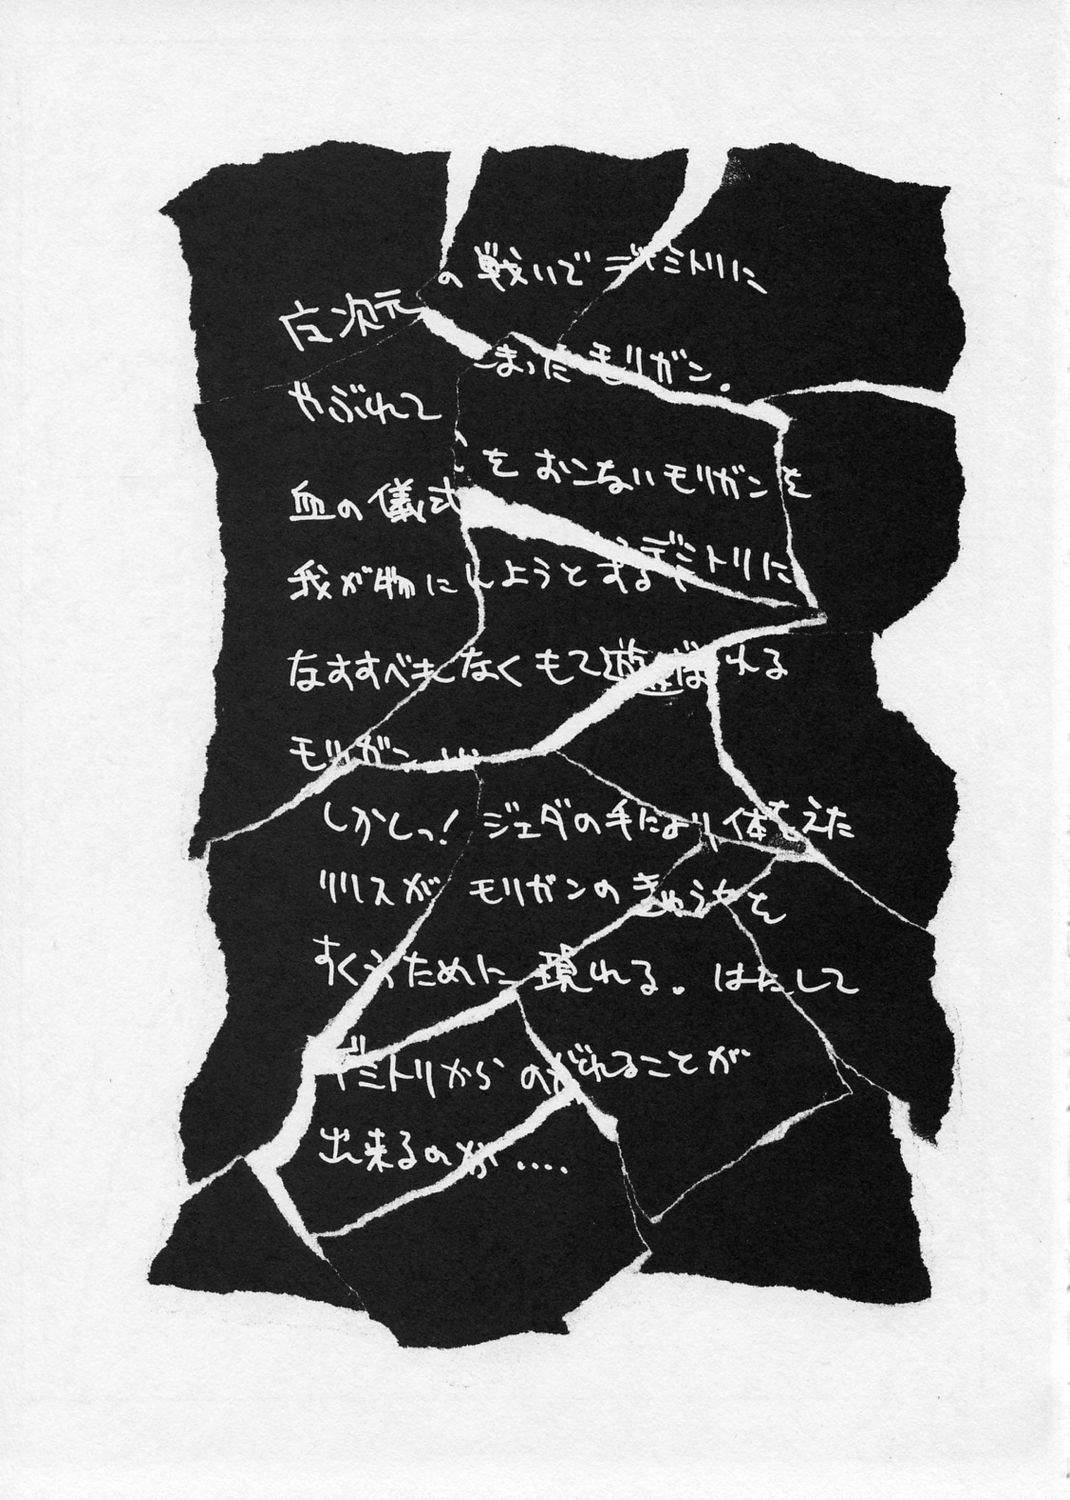 左次元の戦いでデミトリに
やぶれてしまったモリガン。
血の儀式をおこないモリガンを
我が物にしようとするデミトリに
なすすべもなくもて遊ばれる
モリガン…
しかしっ!ジェダの手により体をえた
リリスがモリガンのきゅうちを
すくうために現れる。はたして
デミトリからのがれることが
出来るのか‥‥